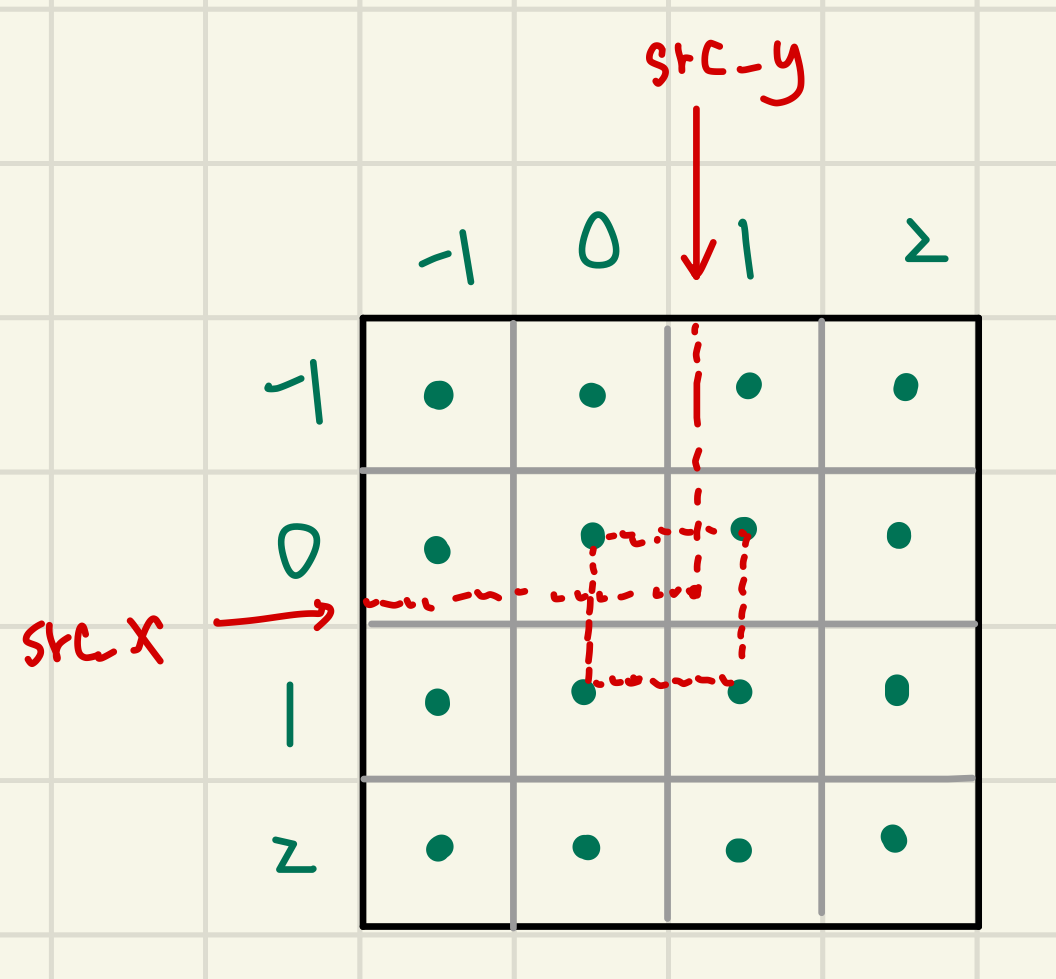 src_y
-1 0 1 2
-1
0
src_x
1
2